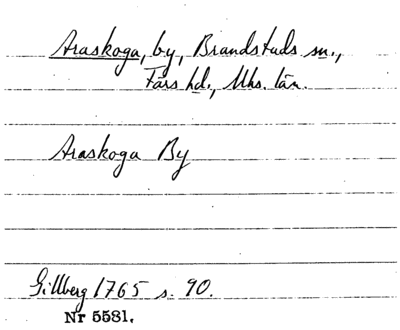 Araskoga, by, Brandstads sn.,
Färs hd., Mhs. län.
Araskoga By
Gillberg 1765 s. 90.
Nr 5581.